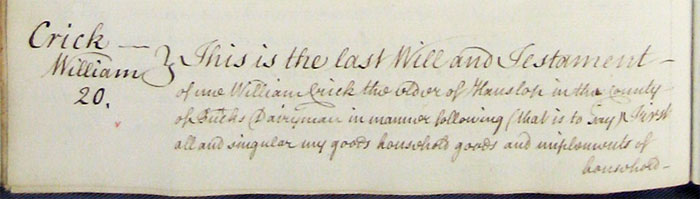 Crick —
William
20.
This is the last Will and Testament –
of me William Crick the elder of Hanslop in the County
of Bucks Dairyman in manner following (that is to say) First
all and singular my goods household goods and implements of
household –